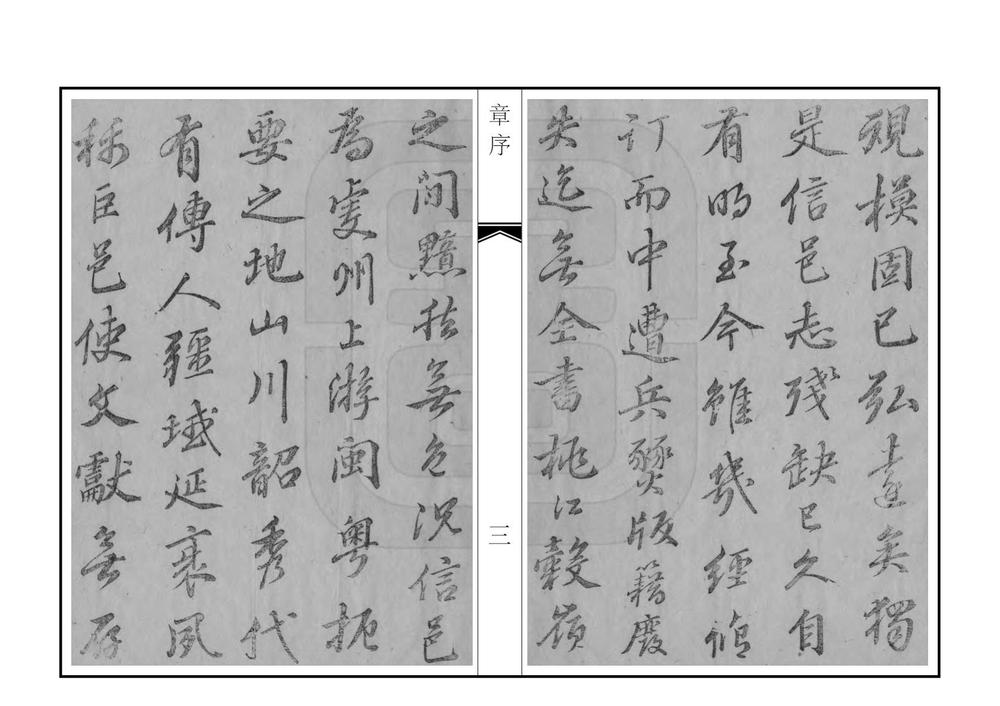 規模固已弘達矣獨
是信邑志殘缺已久自
有明至今雖幾經脩
訂而中遭兵燹版籍廢
失迄無全書桃江穀嶺
章序
三
之間黯然無色況信邑
為虔州上游閩粵扼
要之地山川韶秀代
有傳人疆域延袤夙
稱巨邑使文獻無存